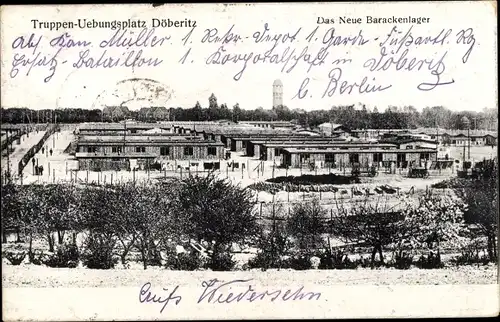 Truppen-Uebungsplatz Döberitz
Das Neue Barackenlager
Abs. Kan. Müller 1. Rekr. Depot 1. Garde-Fußartl. Rg
Ersatz-Bataillon 1. Korporalschaft Döberitz
b. Berlin
Auf Wiedersehn.